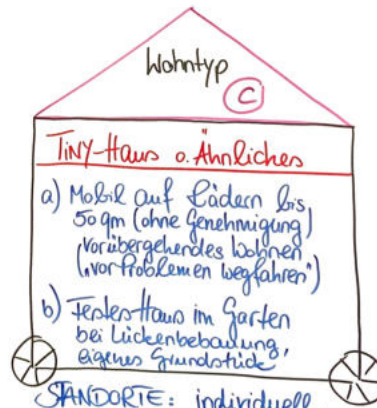 Wohntyp
C
Tiny-Haus o. Ähnliches
a) Mobil auf Rädern bis
50 qm (ohne Genehmigung)
vorübergehendes Wohnen
("vor Problemen wegfahren")
b) Festes Haus im Garten
bei Lückenbebauung,
eigenes Grundstück
STANDORTE: individuell